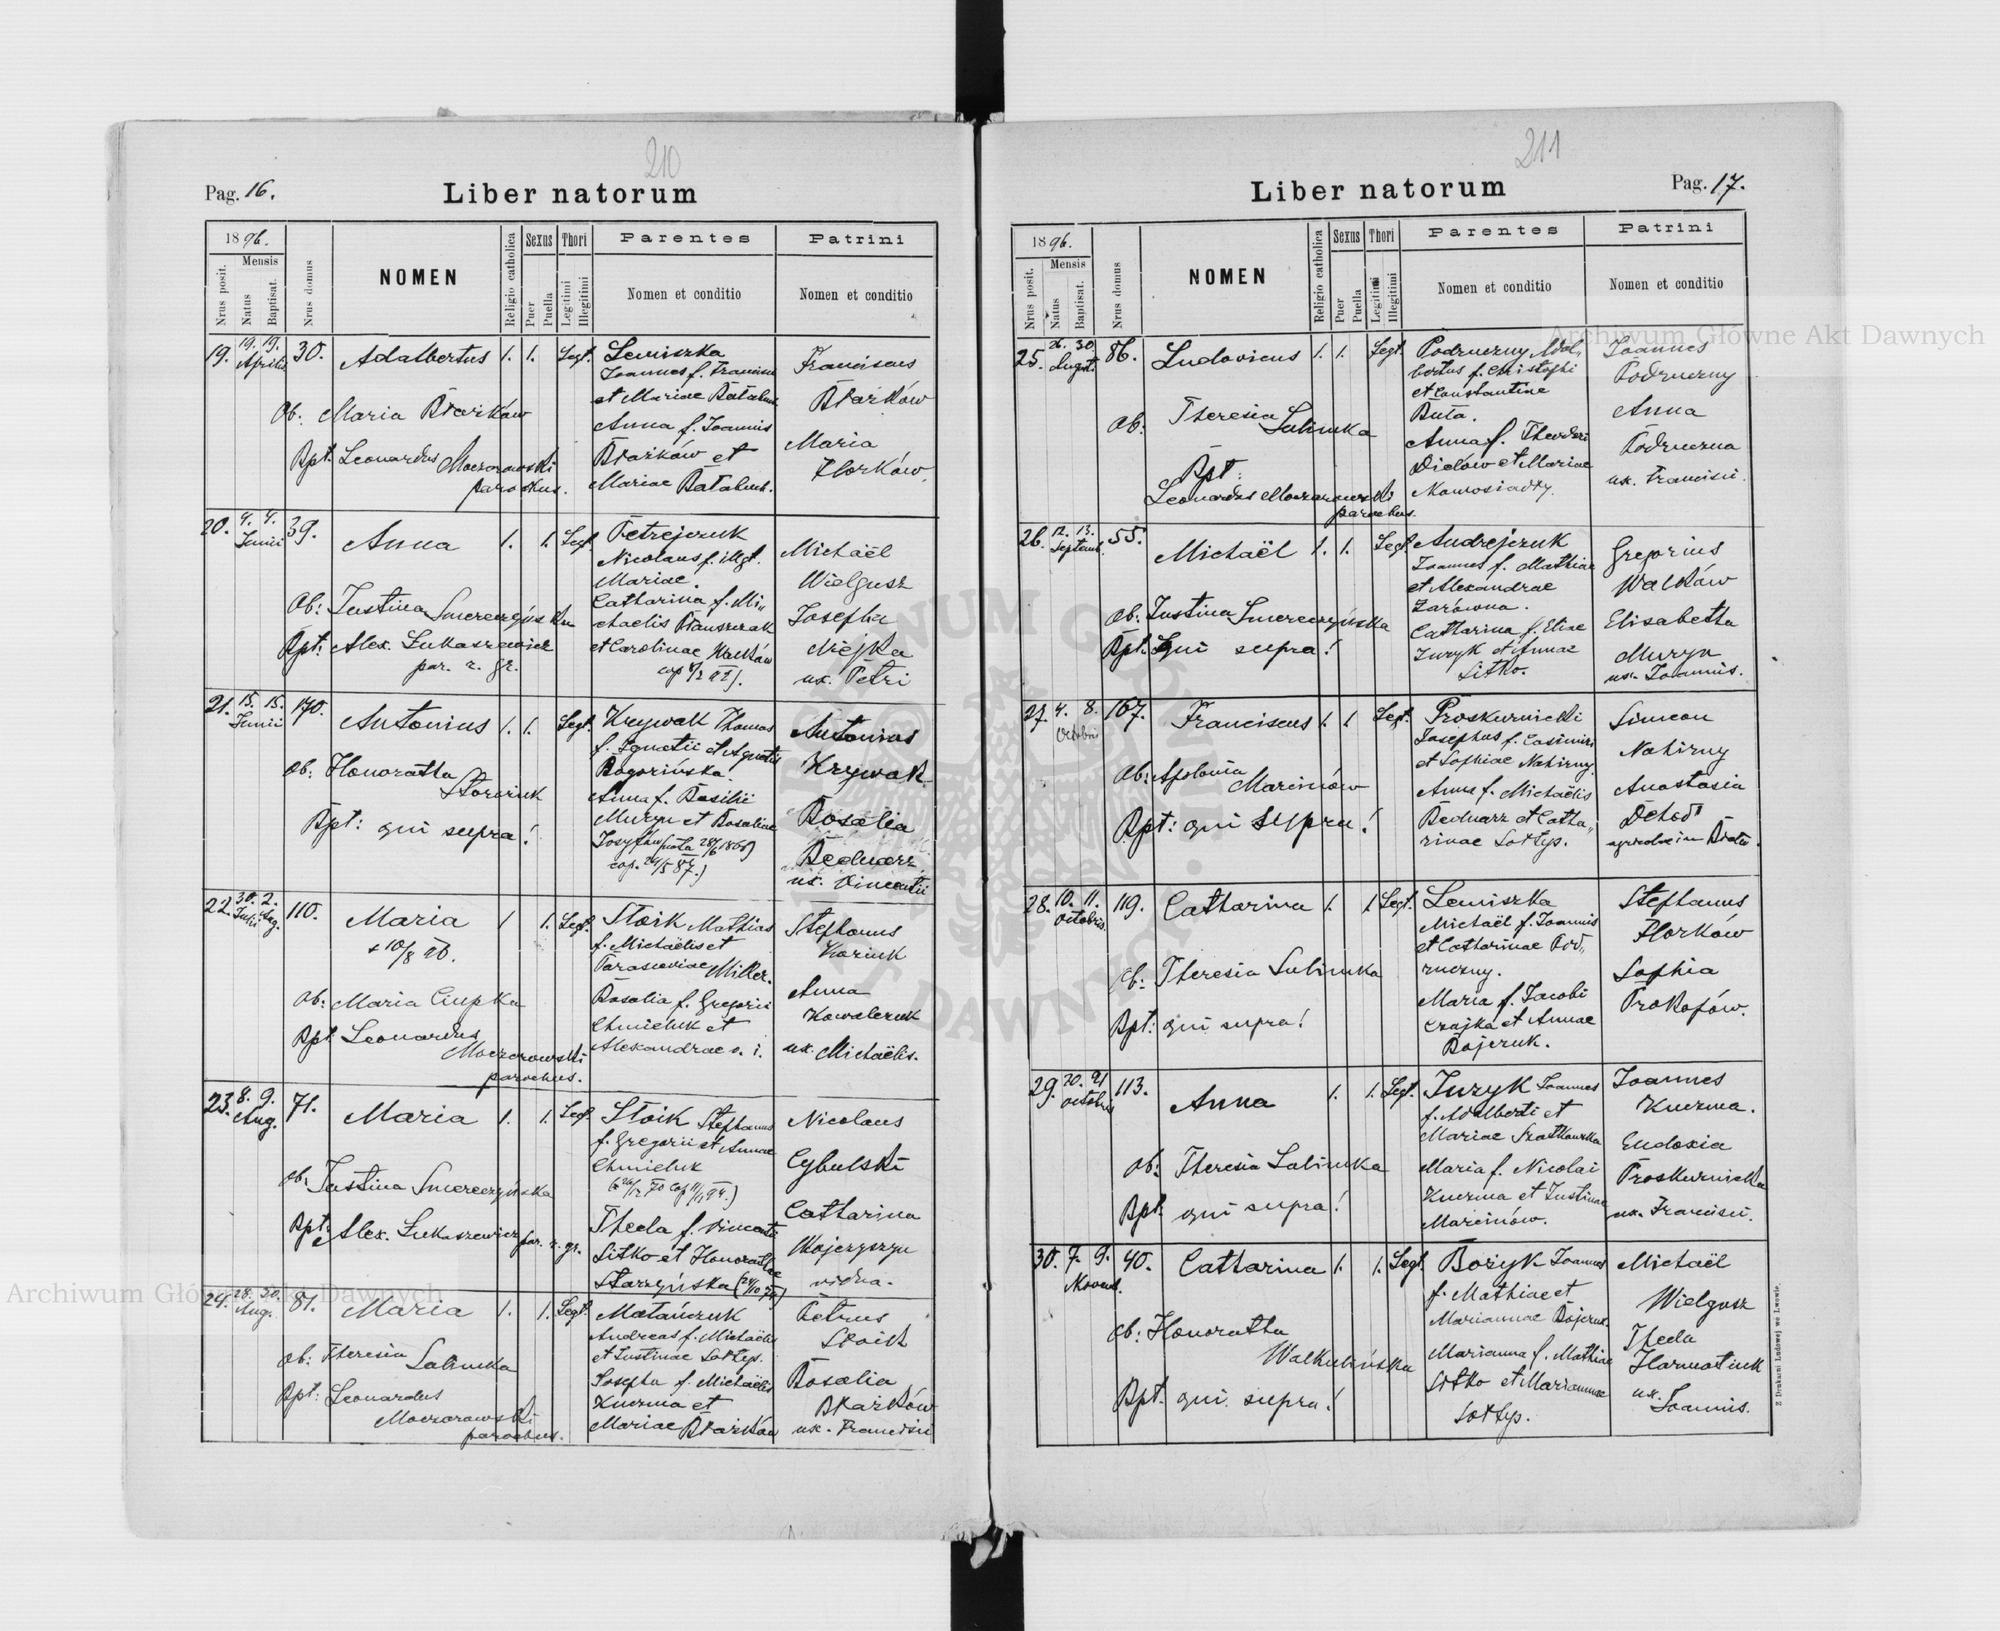 210
Pag. 16.
Liber natorum
1896.
Mensis
Nrus posit.
Natus
Baptisat.
Nrus domus
NOMEN
Religio catholica
Sexus
Puer
Puella
Thori
Legitimi
Illegitimi
Parentes
Nomen et conditio
Patrini
Nomen et conditio
19. 19. 19. Aprilis 30. Adalbertus 1. 1. Legt.
Ob: Maria Błażków
Bpt. Leonardus Moczorowski
parochus.
Lemiszka
Joannes f. Francisci
et Mariae
Anna f. Joannis
Błażków et
Mariae
Franciscus
Błażków
Maria
Horków.
20. 4. 4. Junii 39. Anna 1. 1. Legt.
Ob: Justina Smereczyńska
Bpt: Alex. Łukaszewicz
par. r. gr.
Petrejczuk
Nicolaus f. illgt.
Mariae.
Catharina f. Mi„
chaelis
et Carolinae Walków
Michaël
Wielgusz
Josepha
Miejka
ux. Petri
21. 15. 15. Junii 170. Antonius 1. 1. Legt.
Ob: Honoratha
Bpt: qui supra!
Krywak Thomas
f. Ignatii et Agnetis
Bogorińska.
Anna f. Basilii
Muryn et Rosaliae
Antonius
Krywak
Rosalia
Bednarz
ux. Vincentii
22. 30. Julii 2. Aug. 110. Maria 1 1. Legt.
+ 10/8 96.
Ob: Maria Ciupka
Bpt. Leonardus
Moczorowski
parochus.
Stoik Mathias
f. Michaëlis et
Parasceviae Miller.
Rosalia f. Gregorii
Chmieluk et
Alexandrae
Stephanus
Koziuk
Anna
Kowalczuk
ux. Michaëlis.
23. 8. 9. Aug. 71. Maria 1. 1. Legt.
Ob. Justina Smereczyńska
Bpt: Alex. Łukaszewicz par. r. gr.
Stoik Stephanus
f. Gregorii et Annae
Chmieluk
Thecla f. Vincentii
Sitko et Honorathae
Starzyńska
Nicolaus
Cybulski
Catharina
Wojczyszyn
vidua.
24. 28. 30. Aug. 81. Maria 1. 1. Legt.
Ob: Theresia Salimka
Bpt: Leonardus
Moczorowski
parochus.
Matańczuk
Andreas f. Michaëlis
et Justinae Sołtys.
Josepha f. Michaëlis
Kuczma et
Mariae Błażków
Petrus
Stoik
Rosalia
Błażków
ux. Francisci
211
Liber natorum
Pag. 17.
1896.
Mensis
Nrus posit.
Natus
Baptisat.
Nrus domus
NOMEN
Religio catholica
Sexus
Puer
Puella
Thori
Legitimi
Illegitimi
Parentes
Nomen et conditio
Patrini
Nomen et conditio
25. 26. 30. Augti. 86. Ludovicus 1. 1. Legt.
Ob: Theresia Salimka
Bpt:
Leonardus Moczorowski
parochus.
Podruczny Adal„
bertus f. Christophi
et Constantine
Buta.
Anna f. Theodori
Didów et Mariae
Nowosiadły.
Joannes
Podruczny
Anna
Podruczna
ux. Francisci.
26. 12. 13. Septemb. 55. Michaël 1. 1. Legt.
Ob: Justina Smereczyńska
Bpt: qui supra!
Andrejczuk
Joannes f. Mathiae
et Alexandrae
Żarówna.
Catharina f. Eliae
Juzyk et Annae
Sitko.
Gregorius
Walków
Elisabetha
Muryn
ux. Joannis.
27. 4. 8. Octobris 167. Franciscus 1. 1 Legt.
Ob: Apolonia Marcinów
Bpt: qui supra!
Proskurnicki
Josephus f. Casimiri
et Sophiae Nahirny.
Anna f. Michaëlis
Bednarz et Catha„
rinae Sołtys.
Simeon
Nahirny
Anastasia
28. 10. 11. Octobris 119. Catharina 1. 1. Legt.
Ob: Theresia Salimka
Bpt: qui supra!
Lemiszka
Michaël f. Joannis
et Catharinae Pod„
ruczny.
Maria f. Jacobi
Czajka et Annae
Bojczuk.
Stephanus
Horków
Sophia
Prokopów.
29. 20. 21 Octobris 113. Anna 1. 1. Legt.
Ob: Theresia Salimka
Bpt. qui supra!
Juzyk Joannes
f. Adalberti et
Mariae
Maria f. Nicolai
Kuczma et Justinae
Marcinów.
Joannes
Kuczma.
Eudoxia
Proskurnicka
ux. Francisci.
30. 7. 9. Novemb. 40. Catharina 1. 1. Legt.
Ob: Honoratha
Walkulińska
Bpt. qui supra!
Bożyk Joannes
f. Mathiae et
Mariannae Bojczuk.
Marianna f. Mathiae
Sitko et Mariannae
Sołtys.
Michaël
Wielgusz
Thecla
Harmatiuk
ux. Joannis.
Z Drukarni Ludowej we Lwowie.
Archiwum Główne Akt Dawnych
Archiwum Główne Akt Dawnych
ARCHIWUM GŁÓWNE AKT DAWNYCH